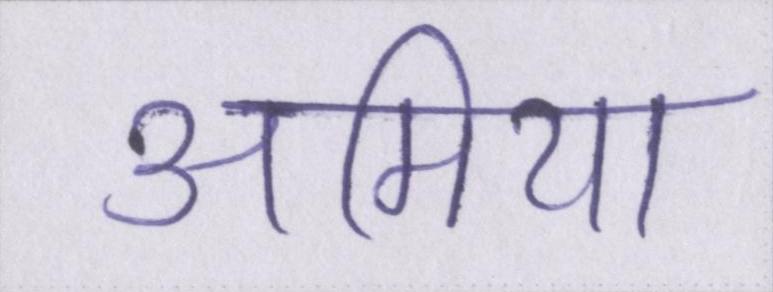 अमिया